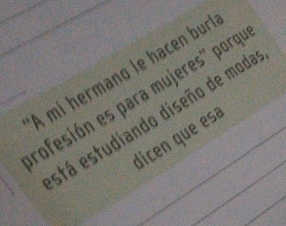 "A mi hermano le hacen burla
profesión es para mujeres" porque
está estudiando diseño de modas,
dicen que esa